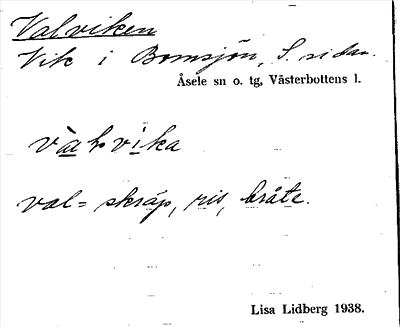 Valviken
Vik i Bomsjön, S. sidan.
Åsele sn o. tg, Västerbottens l.
val = skräp, ris, bråte.
Lisa Lidberg 1938.